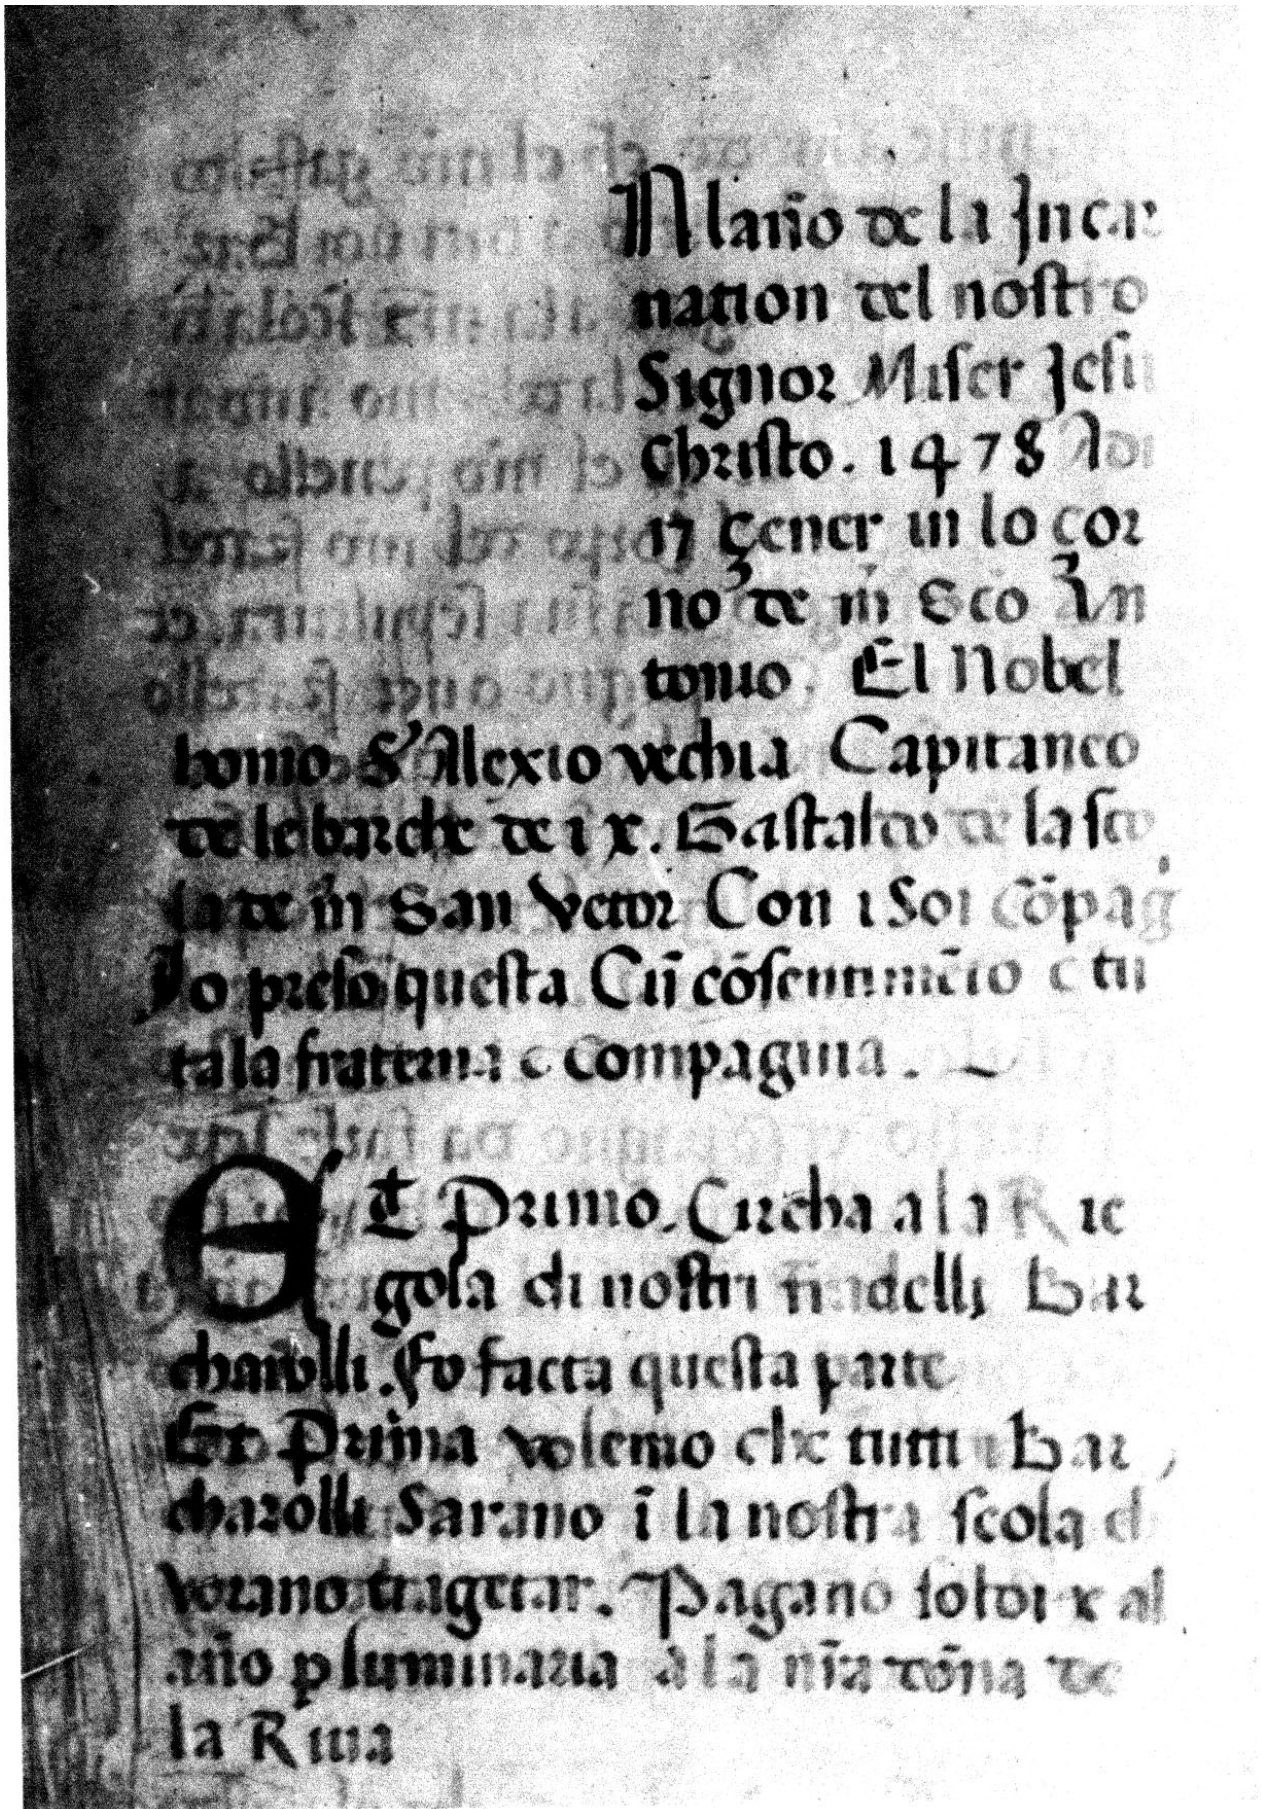 Al año de la Incar
nation del nostro
Signor Miser Jesu
Christo. 1478 Adi
17 gener in lo gor
no de m̄ Sco An
tonio El Nobel
homo Sʳ Alexio vechia Capitaneo
de le barche de ix. Gastaldo de la sco
la de m̄ San Vetor Con i Soi cōpag
Jo preso questa Cū cōsentimēto e tu
ta la fraterna e compagnia.
Et Primo. Circha a la Rie
gola di nostri fradelli Bar
charolli. Fo facta questa parte
Et Prima volemo che tutti i Bar
charolli Sarano ī la nostra scola d
vorano tragetar. Pagano soldi x al
año p luminaria a la nr̄a dōna de
la Riua